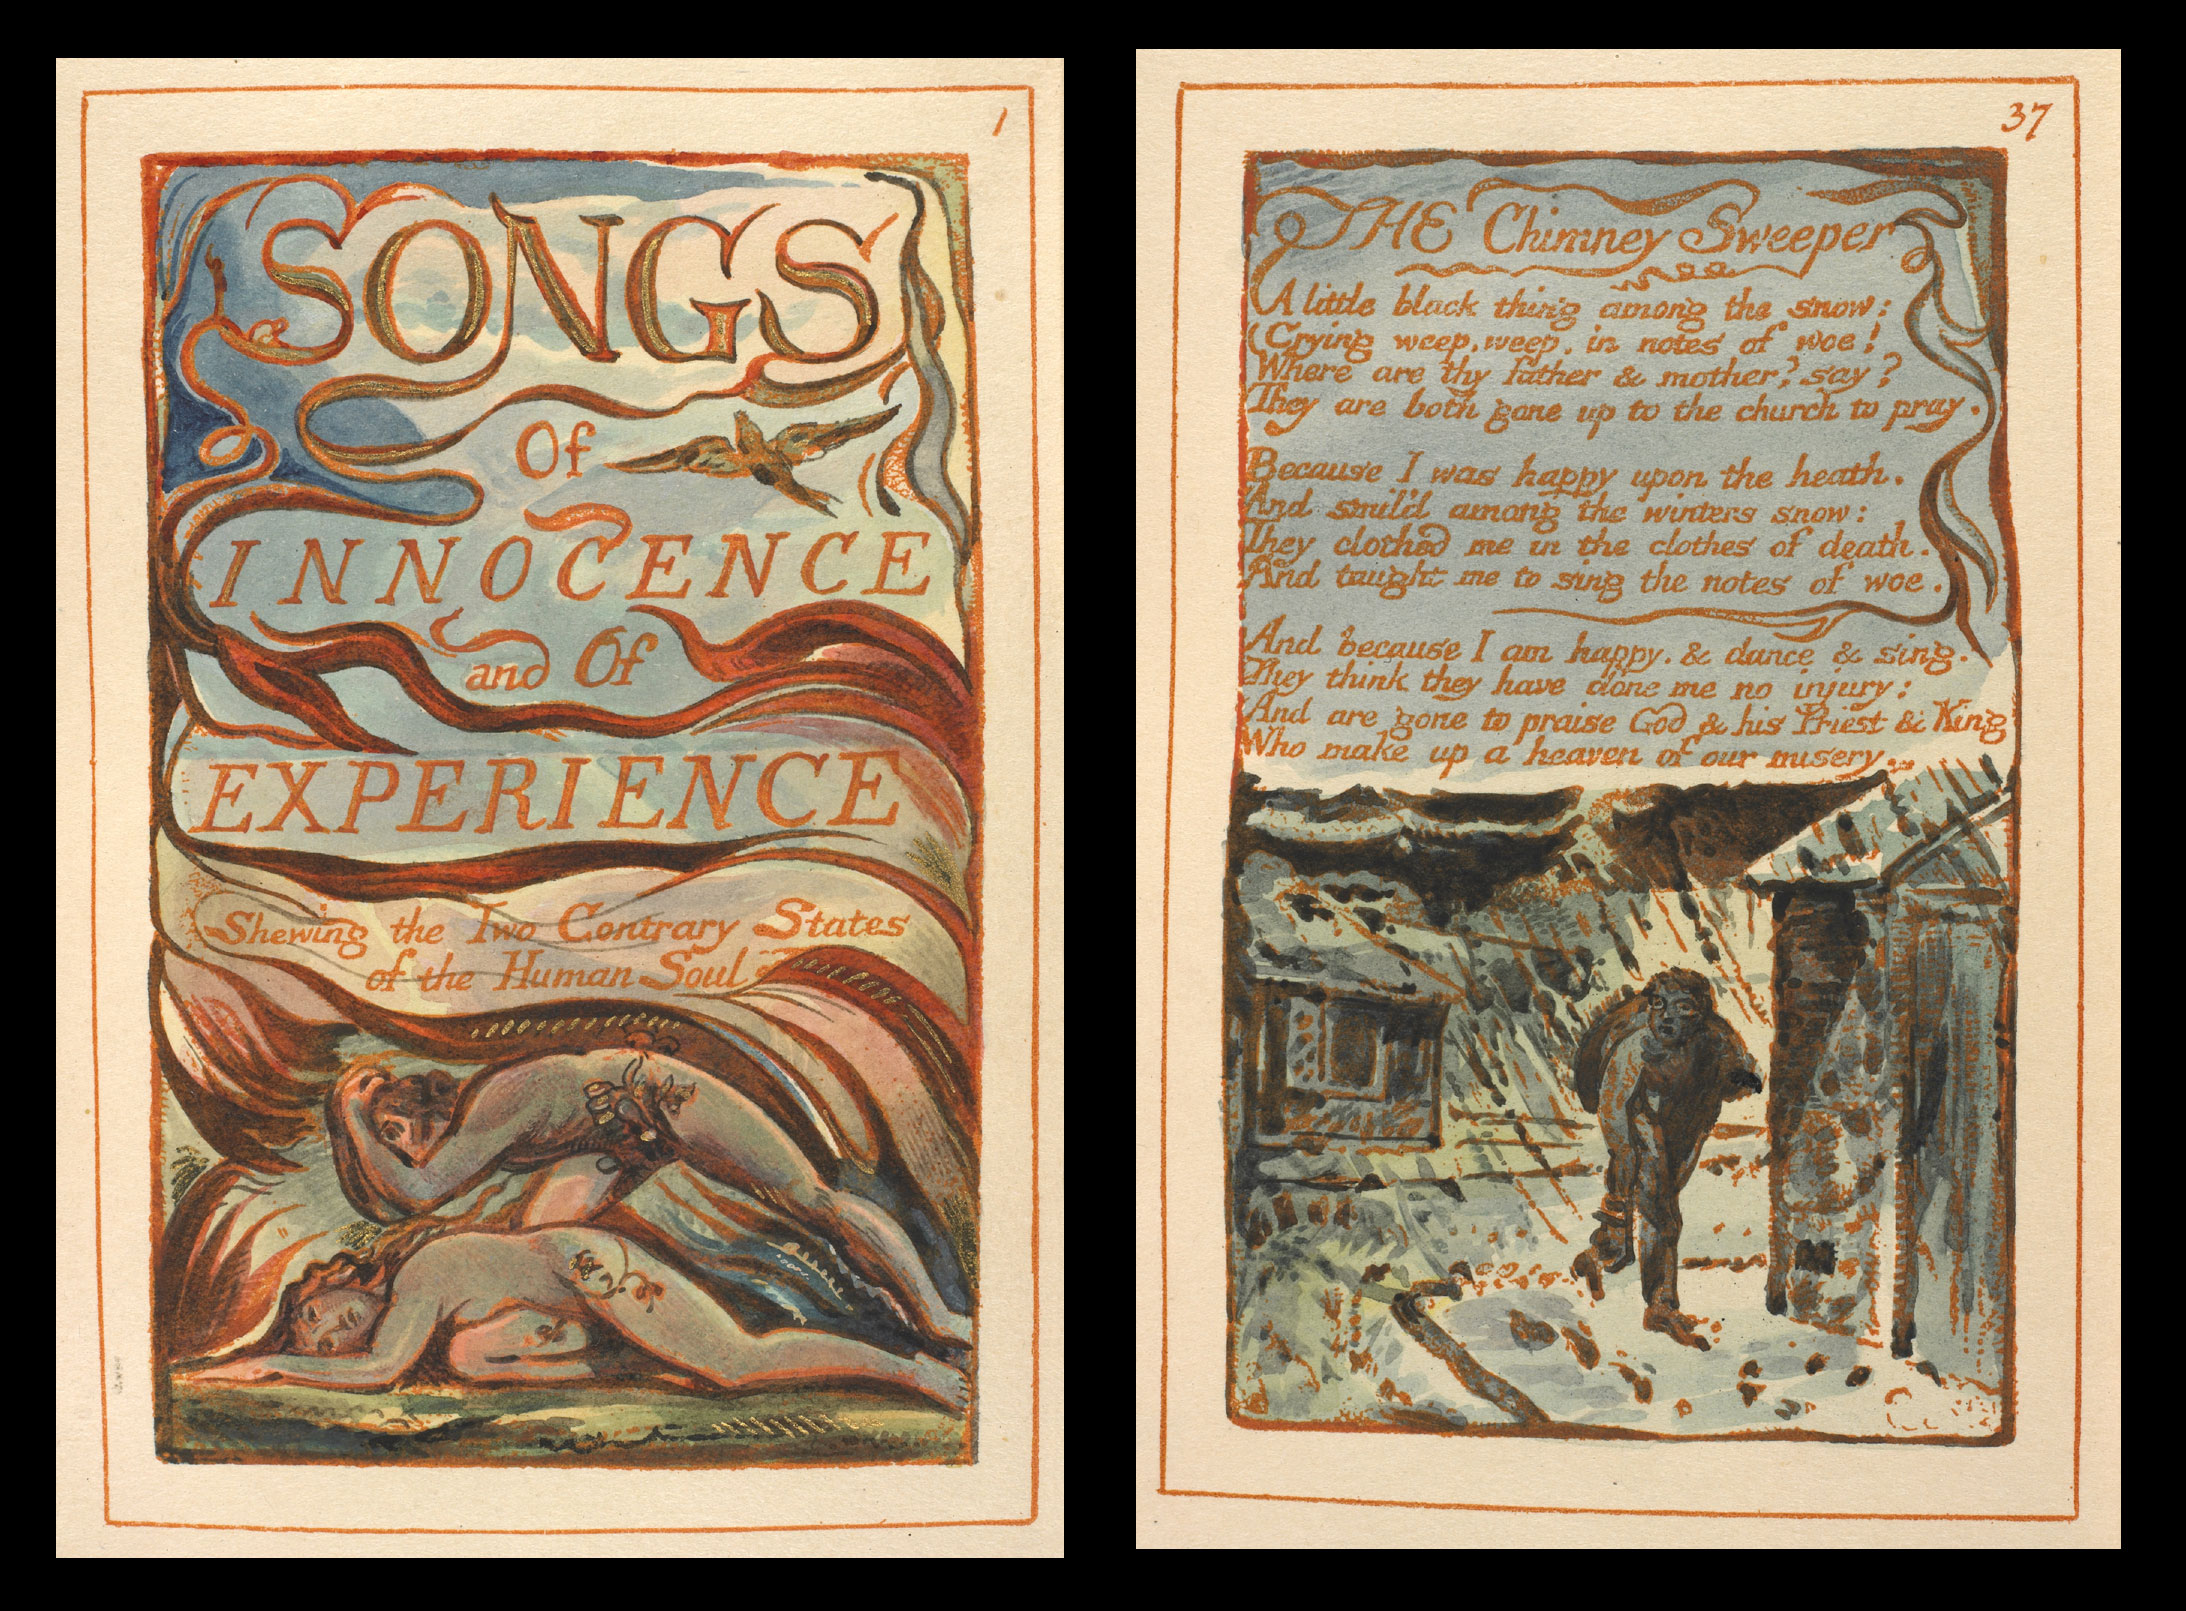 1
SONGS
Of
INNOCENCE
and Of
EXPERIENCE
Shewing the Two Contrary States
of the Human Soul
37
THE Chimney Sweeper
A little black thing among the snow:
Crying weep, weep, in notes of woe!
Where are thy father & mother? say?
They are both gone up to the church to pray.
Because I was happy upon the heath.
And smil'd among the winters snow:
They clothed me in the clothes of death.
And taught me to sing the notes of woe.
And because I am happy. & dance & sing.
They think they have done me no injury:
And are gone to praise God & his Priest & King
Who make up a heaven of our misery.